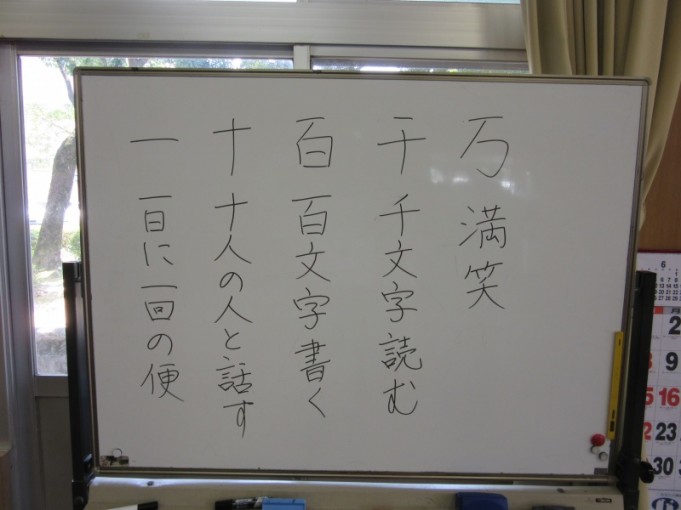 万 満笑
千 千文字読む
百 百文字書く
十 十人の人と話す
一 一日に一回の便
6
2
9
16
23
30